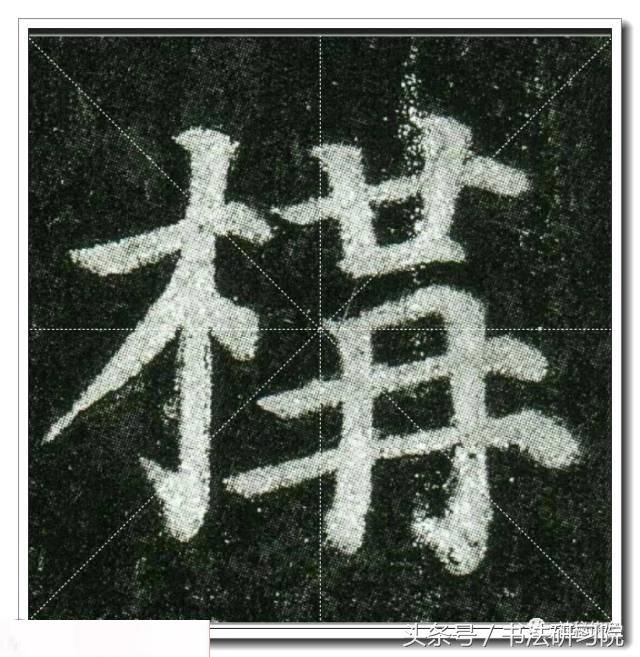 構
头条号 / 书法研习院